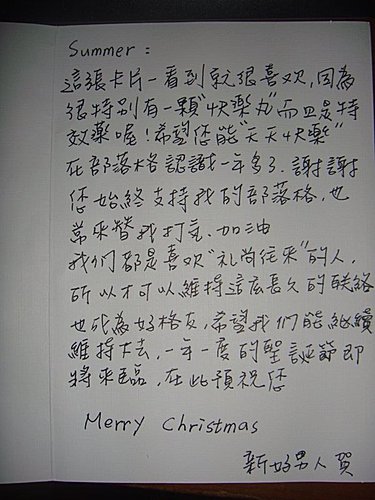 Summer：
這張卡片一看到就很喜欢,因為
很特別有一顆"快樂丸"而且是特
效藥喔！希望您能"天天快樂"
在部落格認識一年多了.謝謝
您始終支持我的部落格,也
常來替我打氣.加油
我们都是喜欢"礼尚往來"的人,
所以才可以維持這広長久的联絡
也成為好格友,希望我们能繼續
維持下去,一年一度的聖誕節即
將來臨,在此預祝您
Merry Christmas
新好男人賀